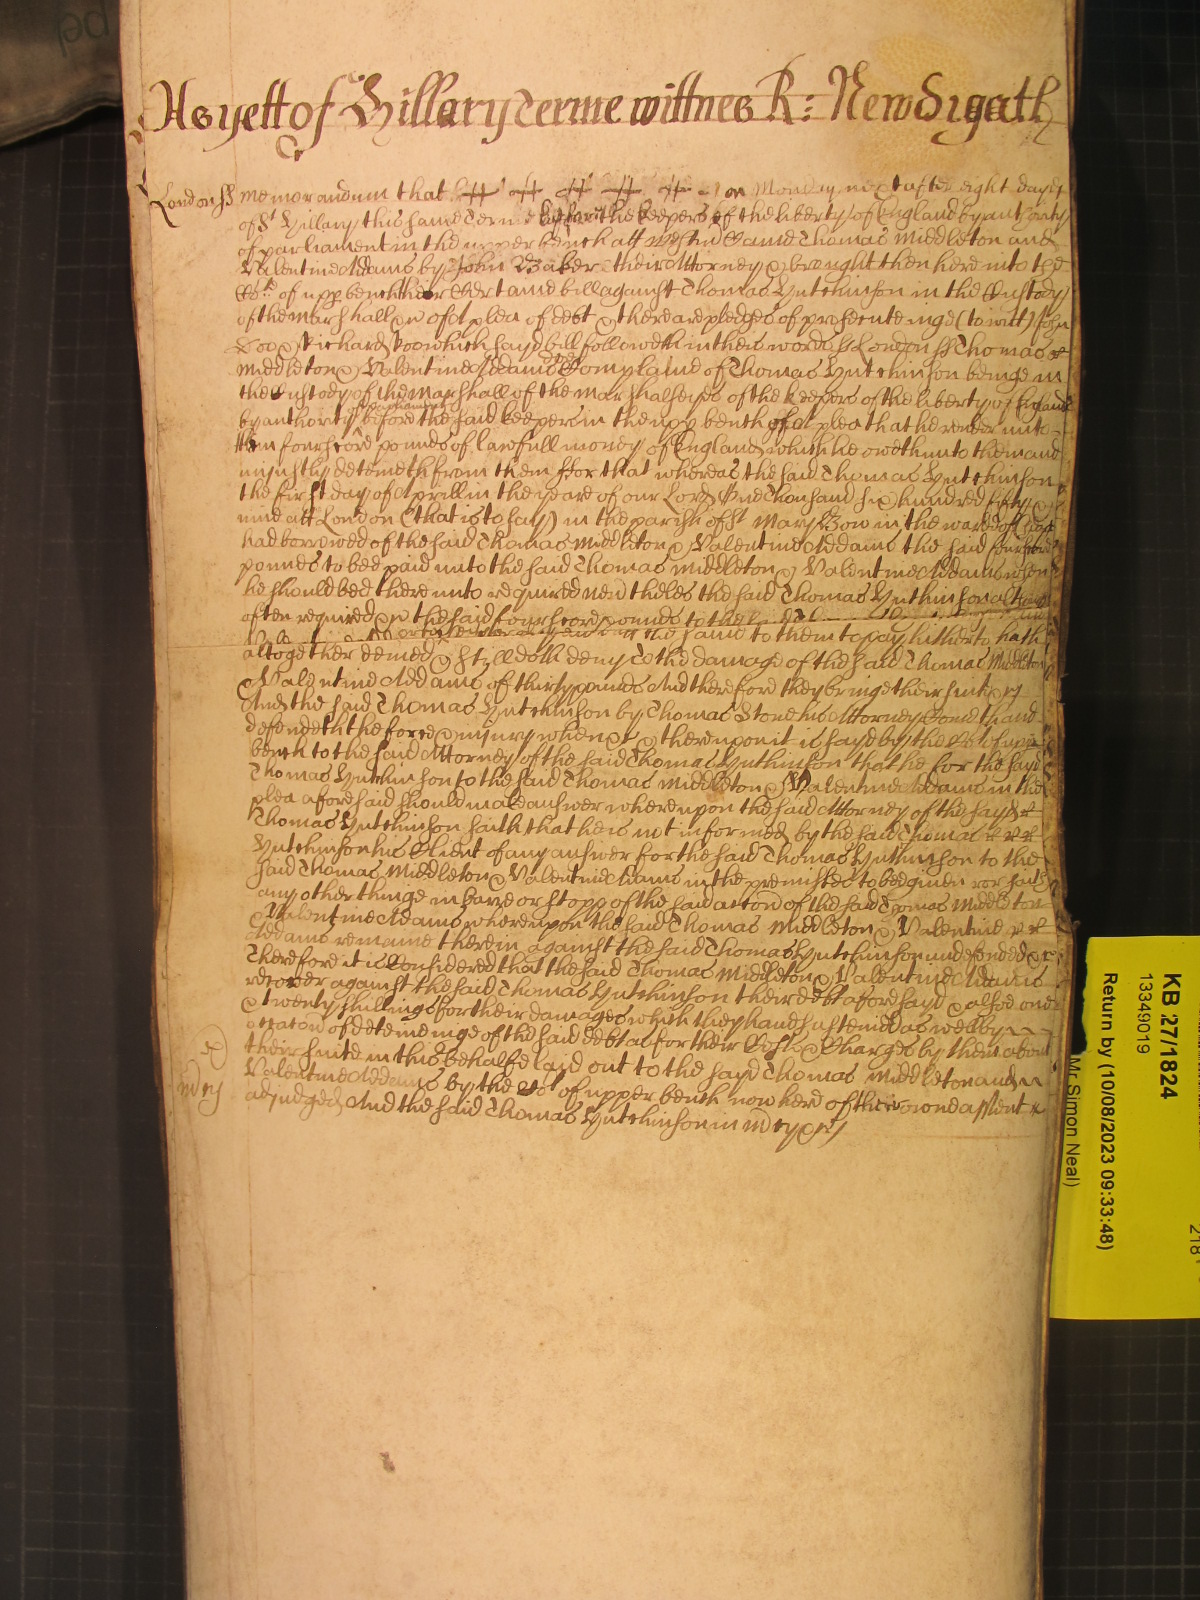 As yett of Hillary Terme wittnes R: Newdigath
London ss Memorandum that on Monday next after eight dayes
of St Hillary this same Terme before the keepers of the liberty of England by authority
of parliament in the upper bench att Westm Came Thomas Middleton and
Valentine Addams by John Baker their Attorney & brought then here into the
Cort of upp bench their Certaine bill against Thomas Hutchinson in the Custody
of the Marshall &c of a plea of debt & there are pledges of prosecuteinge (to witt) John
Doo & Richard Roo which sayd bill followeth in these words ss London ss Thomas
Middleton & Valentine Addams Complaine of Thomas Hutchinson beinge in
the Custody of the Marshall of the Marshalseyes of the keepers of the liberty of England
by authority of parliament before the said keepers in the upp bench of a plea that he render unto
them fourscore pounds of lawfull money of England which he oweth unto them and
uniustly deteineth from them ffor that whereas the said Thomas Hutchinson
the first day of Aprill in the yeare of our Lord One thousand six hundred fifty &
nine att London (that is to say) in the parish of St Mary Bow in the ward of Cheap
had borrowed of the said Thomas Middleton & Valentine Addams the said fourscore
pounds to bee paid unto the said Thomas Middleton & Valentine Addams when
he should bee thereunto required Neverthelss the said Thomas Hutchinson although
often required &c the said fourscore pounds to the said
Valentine the same to them to pay hitherto hath
altogether denied & still doth deny To the damage of the said Thomas Middleton
& Valentine Addams of thirty pounds And therefore they bringe their suit &c
And the said Thomas Hutchinson by Thomas Stone his Attorney Cometh and
defendeth the force & iniury when &c & thereupon it is sayd by the Cort of upper
bench to the said Attorney of the said Thomas Hutchinson that he for the sayd
Thomas Hutchinson to the said Thomas Middleton & Valentine Addams in the
plea aforesaid should make answer whereupon the said Attorney of the sayd
Thomas Hutchinson saith that he is not informed by the said Thomas
Hutchinson his Client of any answer for the said Thomas Hutchinson to the
said Thomas Middleton & Valentine Addams in the premisses to bee given nor saith
any other thinge in barre or stopp of the said accon of the said Thomas Middleton
& Valentine Addams whereupon the said Thomas Middleton & Valentine
Addams remaine therein against the said Thomas Hutchinson undefended &c
Therefore it is Considered that the said Thomas Middleton & Valentine Addams
recover against the said Thomas Hutchinson their debt aforesayd & alsoe one
& twenty shillings for their damages which they have susteined as well by
occacon of deteineinge of the said debt as for their Costs & Charges by them about
their suite in this behalfe laid out to the sayd Thomas Middleton and
Valentine Addams by the Cort of upper bench now here of their owne assent
adiudged And the said Thomas Hutchinson in mercy &c
mcy
KB 27/1824
13349019
Return by (10/08/2023 09:33:48)
Mr Simon Neal)